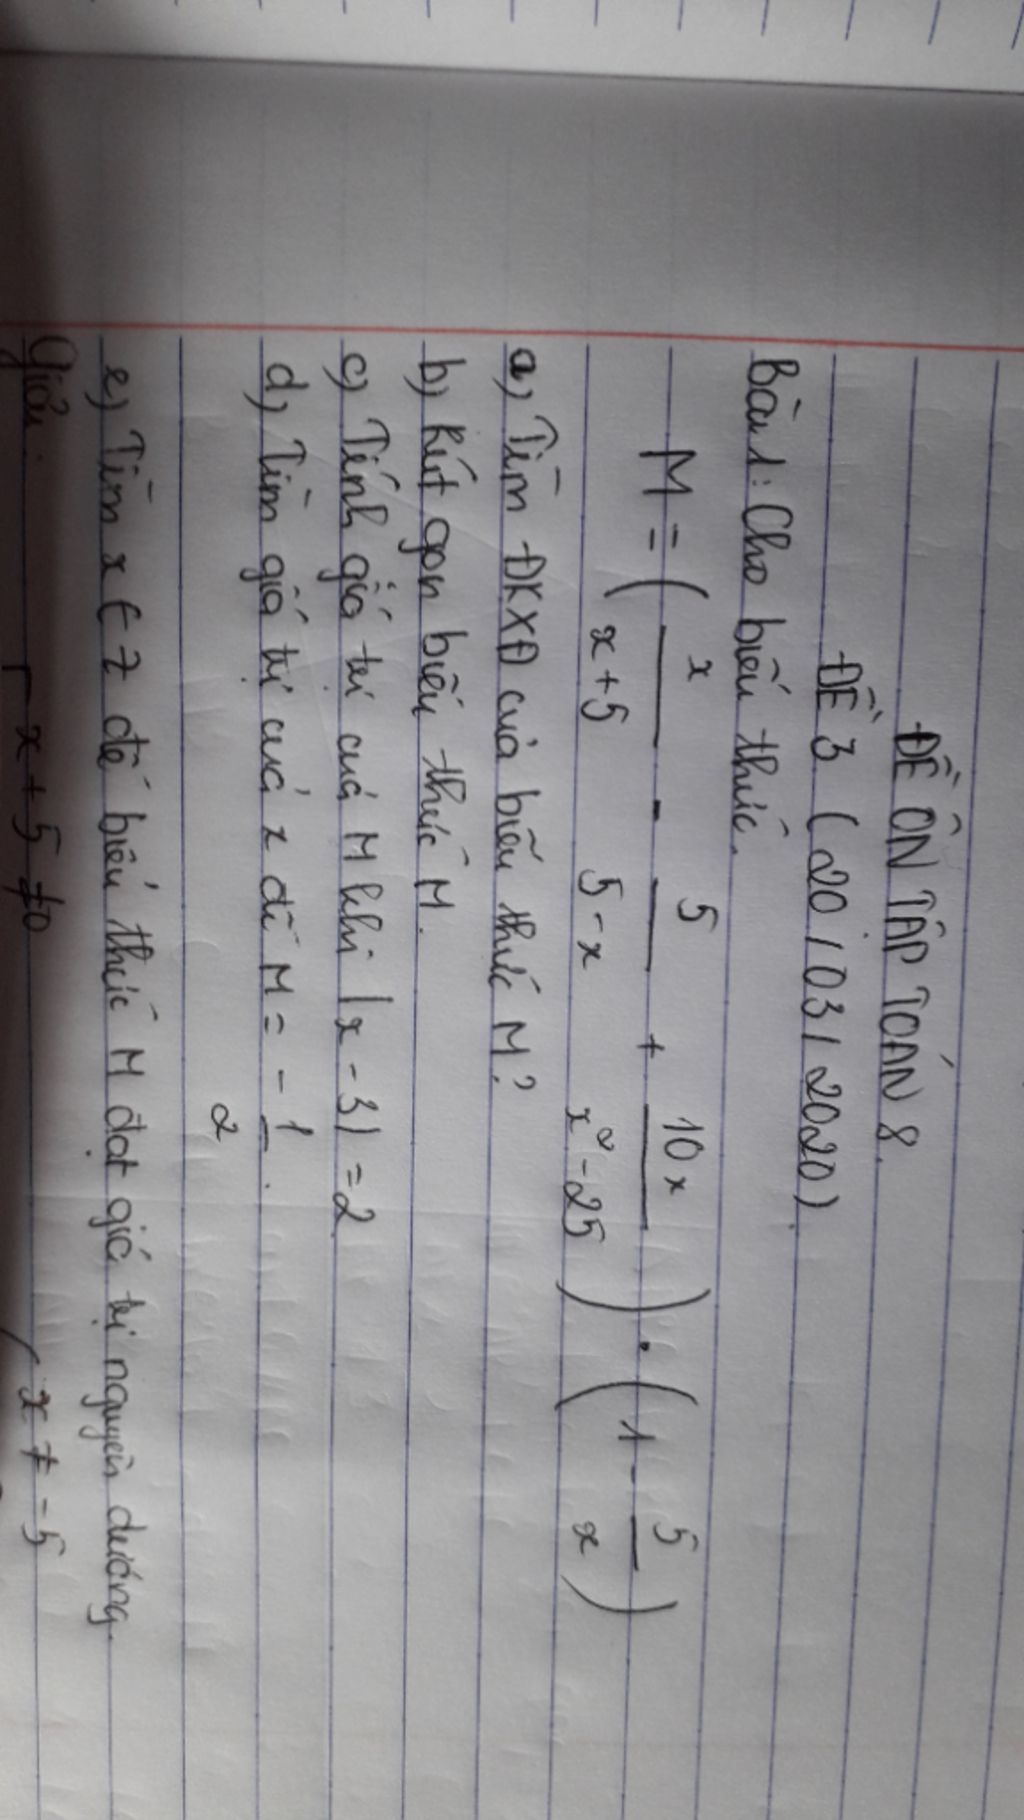 ĐỀ ÔN TẬP TOÁN 8.
ĐỀ 3 (20/03/2020)
Bài 1: Cho biểu thức.
M = ( x/(x+5) - 5/(5-x) + 10x/(x²-25) ) . ( 1 - 5/x )
a) Tìm ĐKXĐ của biểu thức M?
b) Rút gọn biểu thức M.
c) Tính giá trị của M khi |x-3| = 2
d) Tìm giá trị của x để M = - 1/2.
e) Tìm x ∈ Z để biểu thức M đạt giá trị nguyên dương.
Giải.
x+5 ≠ 0 x ≠ -5